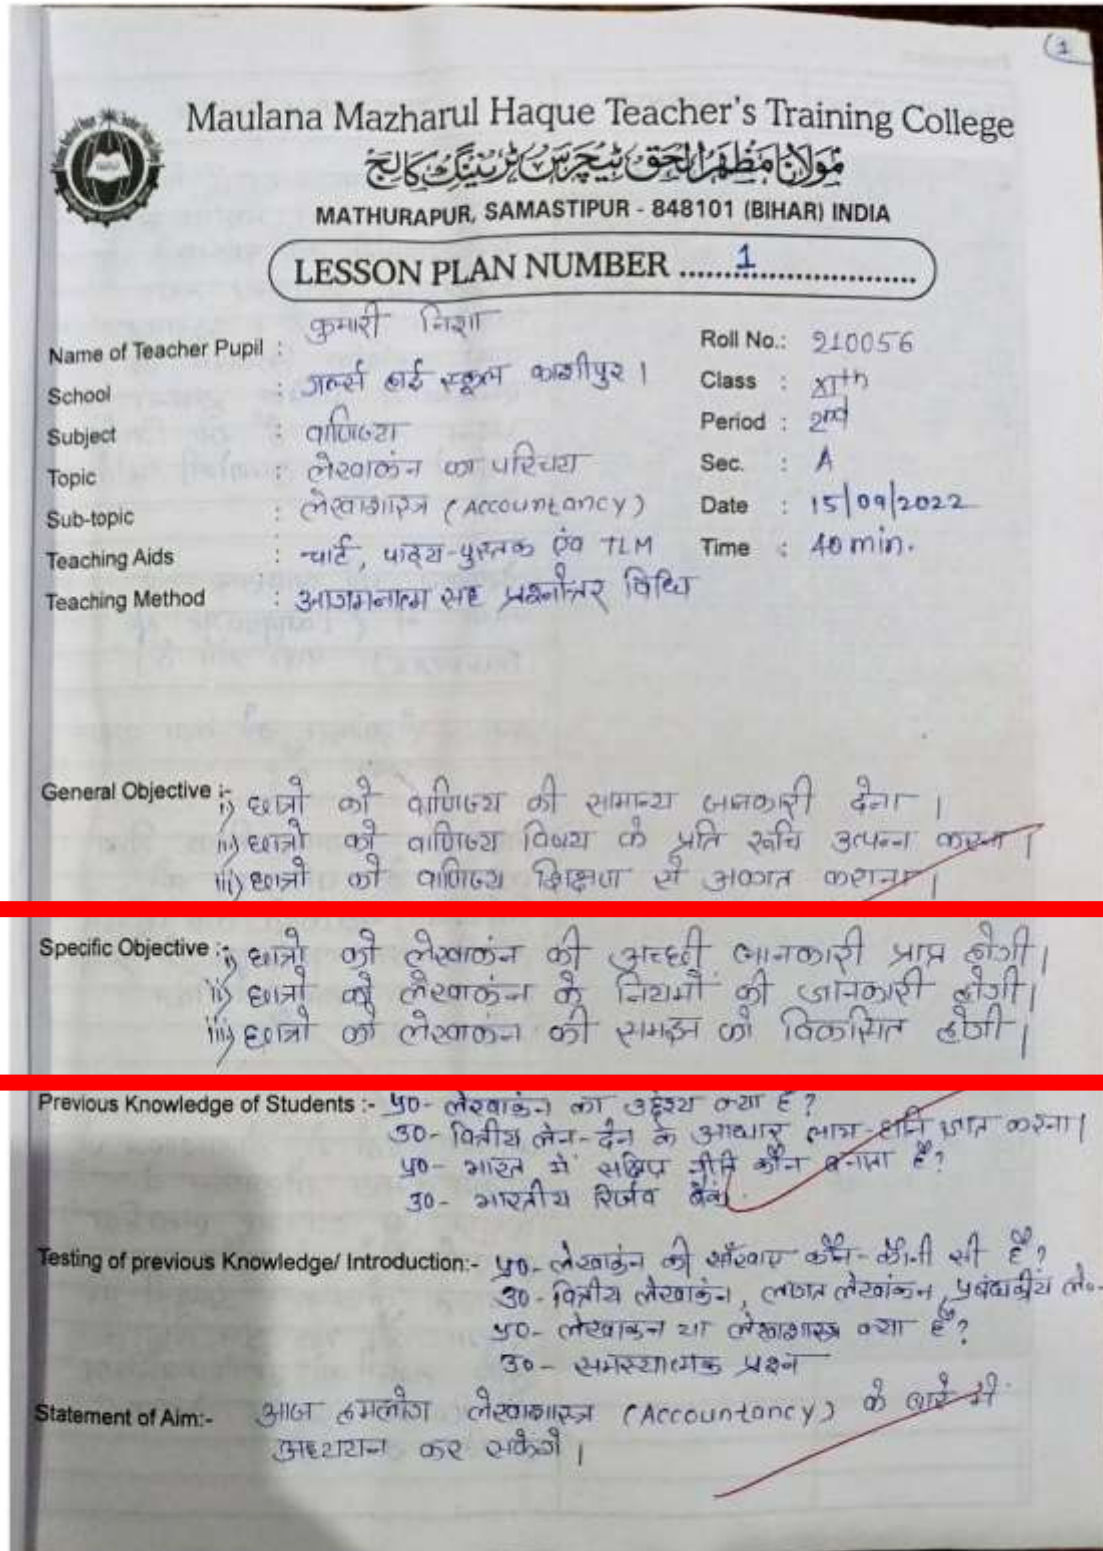 (1
Maulana Mazharul Haque Teacher's Training College
مولانا مظہرالحق ٹیچرس ٹریننگ کالج
MATHURAPUR, SAMASTIPUR - 848101 (BIHAR) INDIA
LESSON PLAN NUMBER ......1......
Name of Teacher Pupil : कुमारी निशा Roll No.: 210056
School : गर्ल्स हाई स्कूल काशीपुर । Class : XIth
Subject : वाणिज्य Period : 2nd
Topic : लेखाकंन का परिचय Sec. : A
Sub-topic : लेखाशास्त्र (Accountancy) Date : 15/09/2022
Teaching Aids : चार्ट, पाठ्य-पुस्तक एंव TLM Time : 40 min.
Teaching Method : आगमनात्म सह प्रश्नोत्तर विधि
General Objective :- i) छात्रो को वाणिज्य की सामान्य जानकारी देना ।
ii) छात्रो को वाणिज्य विषय के प्रति रूचि उत्पन्न करना ।
iii) छात्रो को वाणिज्य शिक्षण से अवगत कराना ।
Specific Objective :- i) छात्रो को लेखाकंन की अच्छी जानकारी प्राप्त होगी ।
ii) छात्रो को लेखाकंन के नियमों की जानकारी होगी ।
iii) छात्रो को लेखाकंन की समझ को विकसित होगी ।
Previous Knowledge of Students :- प्र0- लेखाकंन का उद्देश्य क्या है ?
उ0- वित्तीय लेन-देन के आधार लाभ-हानि ज्ञात करना ।
प्र0- भारत में नीति कौन बनाता है ?
उ0- भारतीय रिर्जव बैंक
Testing of previous Knowledge/ Introduction:- प्र0- लेखाकंन की शाँखाए कौन-कौनी सी है ?
उ0- वित्तीय लेखाकंन, लागत लेखांकन, प्रबंधकीय ले०-
प्र0- लेखाकन या लेखाशास्त्र क्या है ?
उ0- समस्यात्मक प्रश्न
Statement of Aim:- आज हमलोग लेखाशास्त्र (Accountancy) के बारे में
अध्ययन कर सकेगे ।